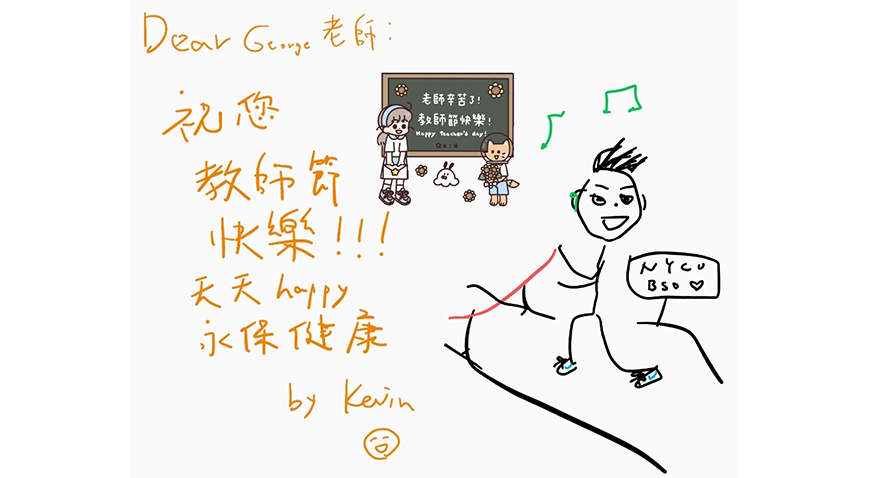 Dear George 老師：
祝您
教師節
快樂!!!
天天 happy
永保健康
by Kevin
老師辛苦了!
教師節快樂!
Happy teacher's day!
NYCU
BSO ♡